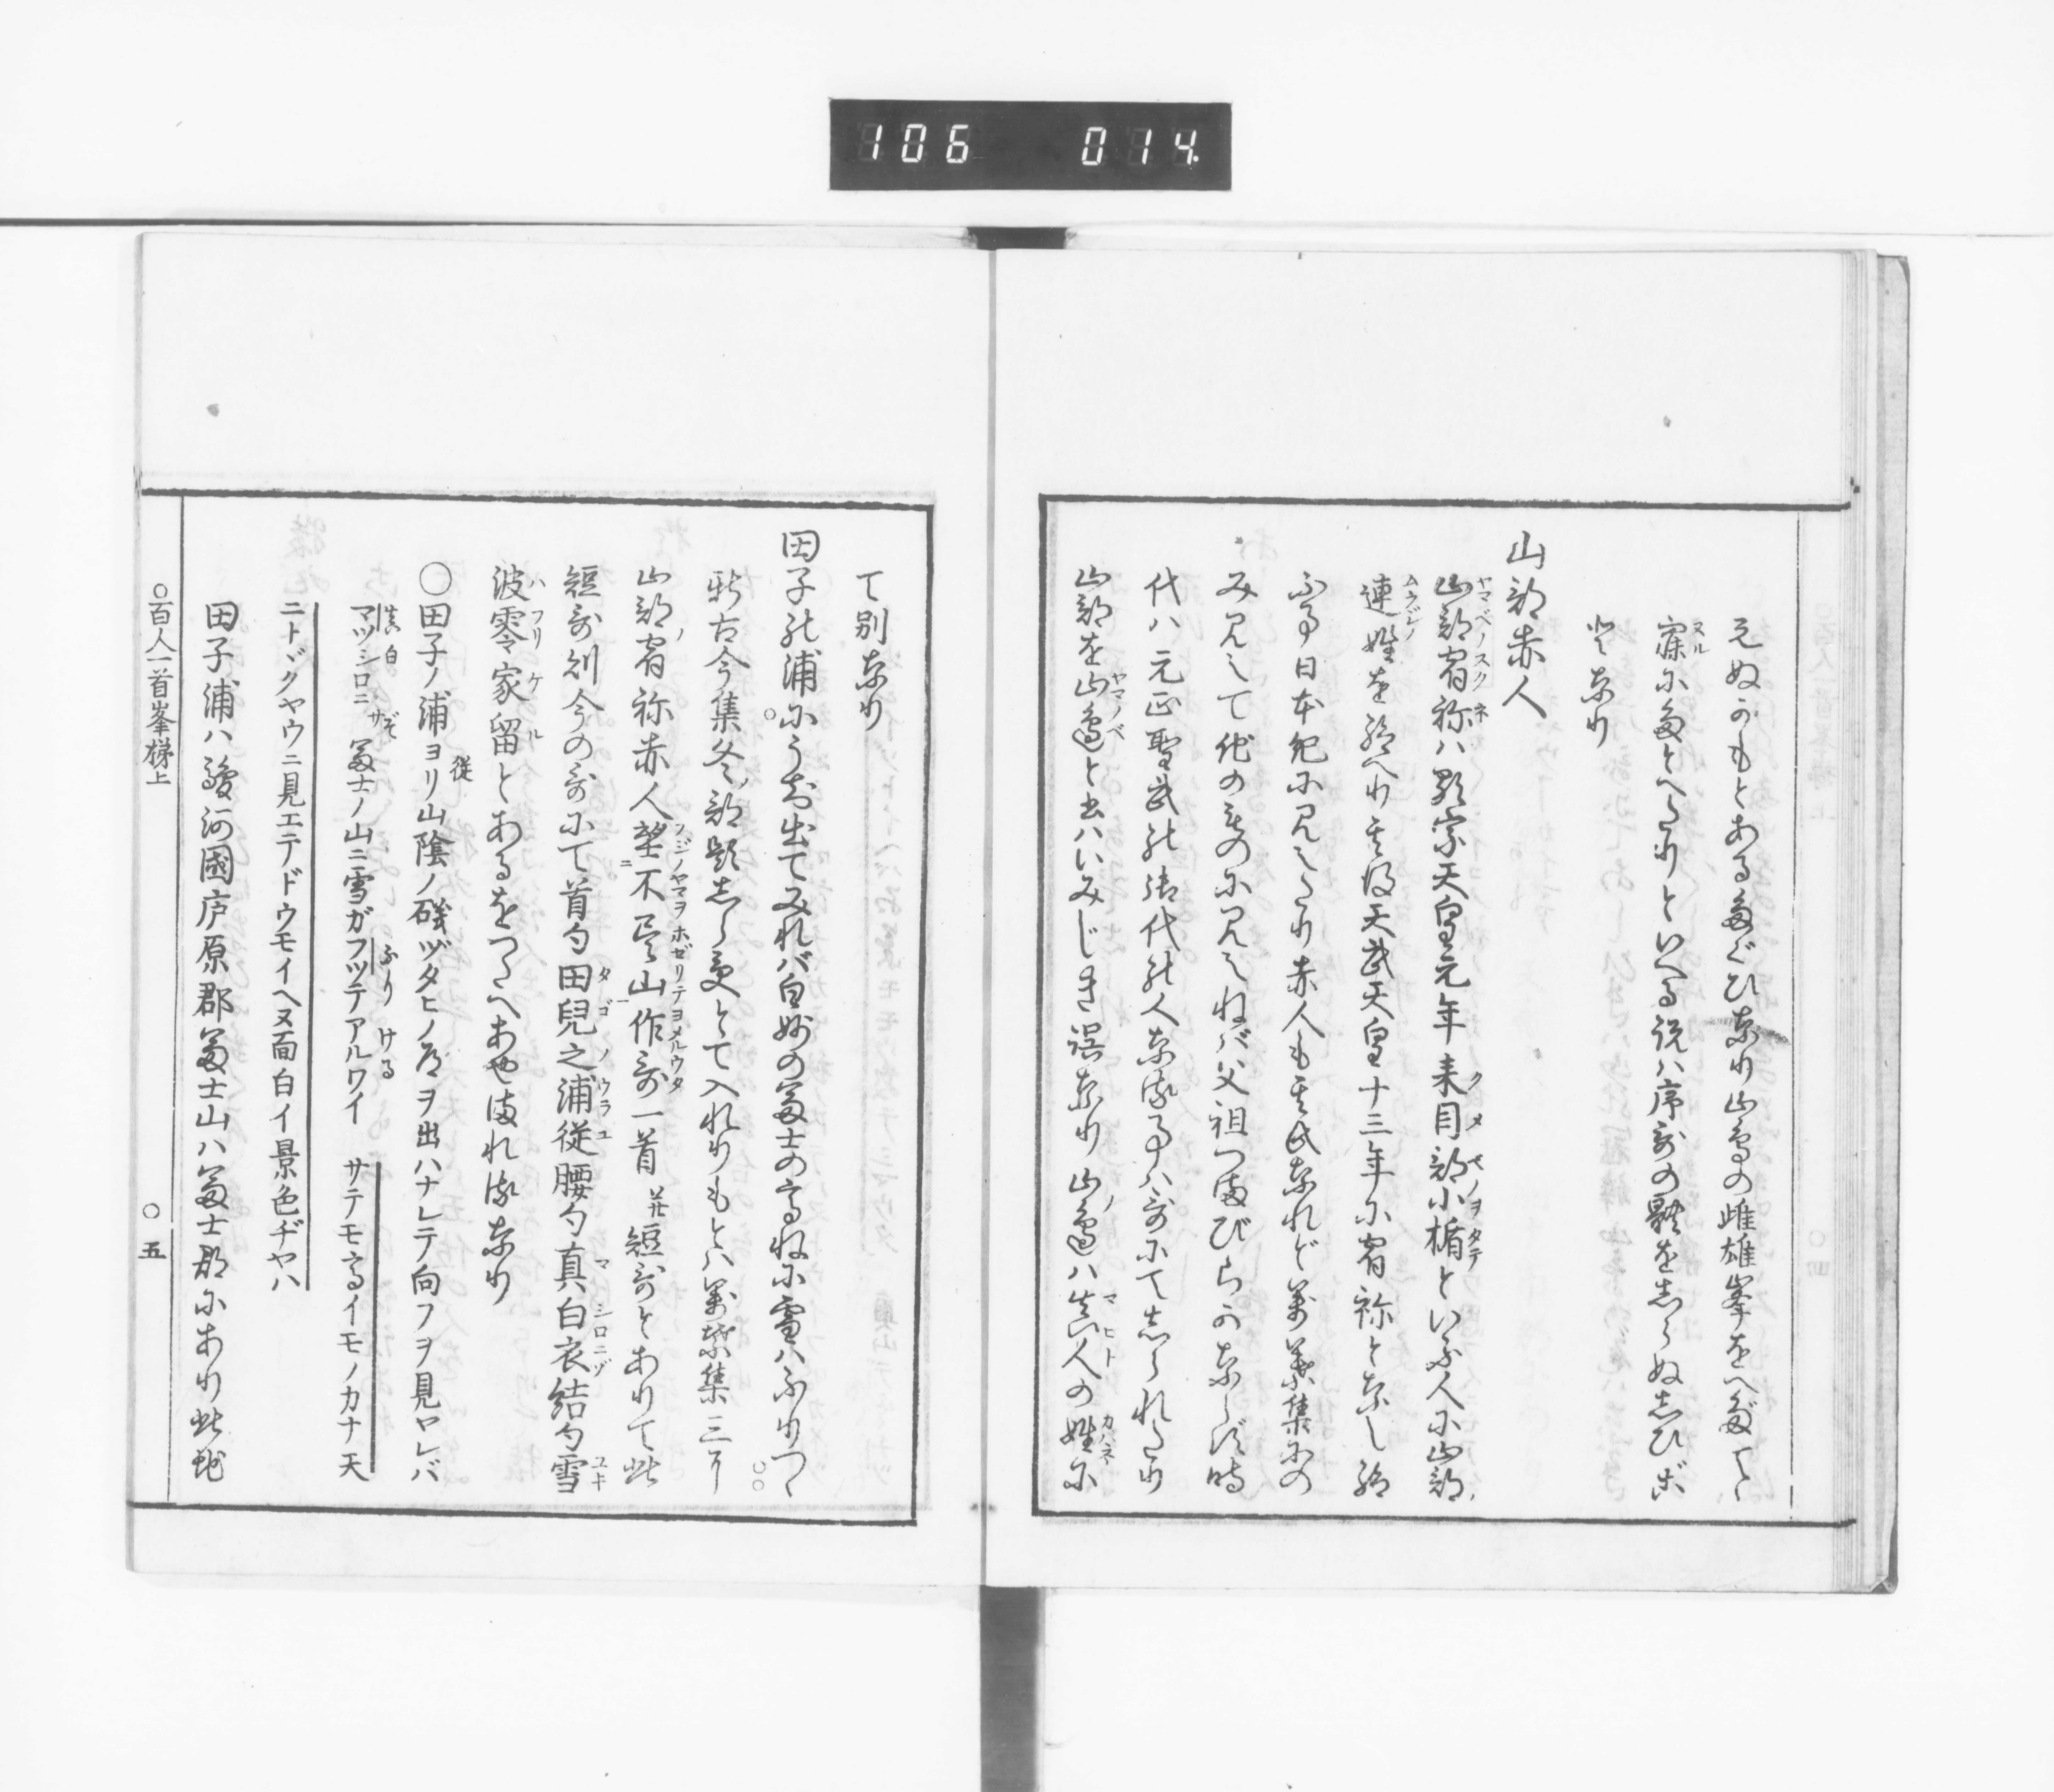 106 014
えぬかもとある類ひなり山鳥の雌雄峯をへだてゝ
寐にたとへたりといへる説ハ序哥の躰をしらぬしひご
となり
山部赤人
山部宿祢ハ顕宗天皇元年来目部小楯といふ人に山部
連姓を給へり其後天武天皇十三年に宿祢となし給
ふ事日本紀に見えたり赤人も其氏なれど万葉集にの
み見えて他のものに見えねば父祖つまびらかならず時
代ハ元正聖武の御代の人なる事ハ哥にてしられたり
山部を山邉と書ハいみじき誤なり山邉ハ真人の姓に
て別なり
田子の浦にうち出てみれバ白妙の冨士の高ねに雪ハふりつゝ
新古今集冬ノ部題しらずとて入れりもとハ万葉集三ニ
山部宿祢赤人望不尽山作哥一首并短哥とありて此
短哥則今の哥にて首句田兒之浦従腰句真白衣結句雪
波零家留とあるをつたへあやまれるなり
○田子ノ浦ヨリ山陰ノ磯ヅタヒノ道ヲ出ハナレテ向フヲ見ヤレバ
マツシロニ冨士ノ山ニ雪ガフツテアルワイ サテモ高イモノカナ天
ニトヾクヤウニ見エテドウモイヘヌ面白イ景色ヂヤハ
田子浦ハ駿河國庐原郡冨士山ハ冨士郡にあり此地
○百人一首峯梯上 ○五